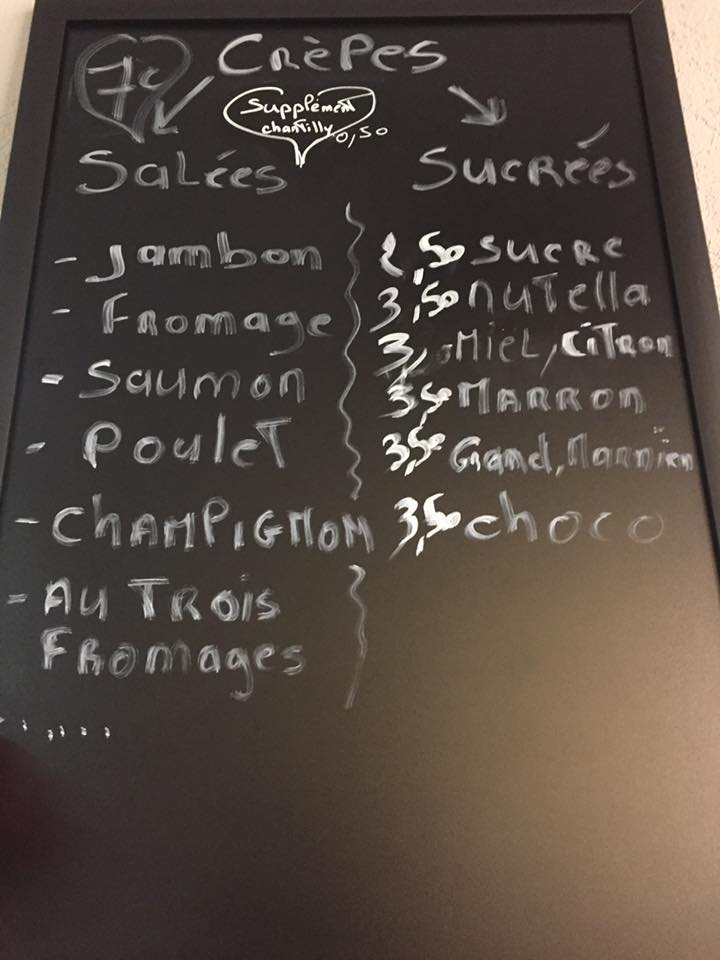 7€
Crèpes
Supplément
chantilly 0,50
Salées
- Jambon
- Fromage
- Saumon
- Poulet
- CHAMPIGNON
- AU TROIS
FROMAGES
......
Sucrées
2,50 sucre
3,50 nutella
3, Miel, Citron
3,50 MARRON
3,50 Grand,
3,50 choco